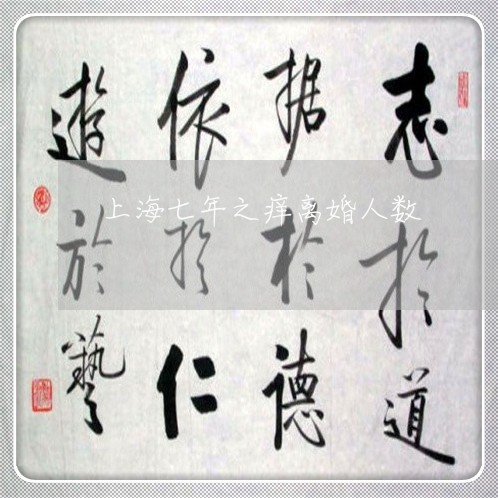 志於道
据於德
依於仁
遊於藝
上海七年之痒离婚人数